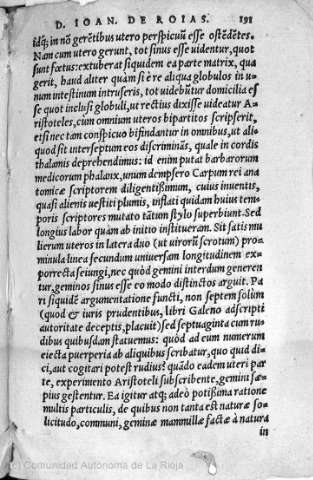 D. IOAN. DE ROIAS. 191
idq; in nō gerētibus utero perspicuū esse ostēdētes.
Nam cum utero gerunt, tot sinus esse uidentur, quot
sunt fœtus: extuberat siquidem ea parte matrix, qua
gerit, haud aliter quàm si è re aliqua globulos in u-
num intestinum intruseris, tot uidebūtur domicilia es
se quot inclusi globuli, ut rectius dixisse uideatur A-
ristoteles, cum omnium uteros bipartitos scripserit,
etsi nec tam conspicuo bifindantur in omnibus, ut ali-
quod sit interseptum eos discriminās, quale in cordis
thalamis deprehendimus: id enim putat barbarorum
medicorum phalanx, unum dempsero Carpum rei ana
tomicæ scriptorem diligentißimum, cuius inuentis,
quasi alienis uestiti plumis, inflati quidam huius tem-
poris scriptores mutato tātum stylo superbiunt. Sed
longius labor quàm ab initio institueram. Sit satis mu
lierum uteros in latera duo (ut uirorū scrotum) pro-
minula linea secundum uniuersam longitudinem ex-
porrecta seiungi, nec quòd gemini interdum generen
tur, geminos sinus esse eo modo distinctos arguit. Pa
ri siquidē argumentatione functi, non septem solùm
(quod & iuris prudentibus, libri Galeno adscripti
autoritate deceptis, placuit) sed septuaginta cum ru-
dibus quibusdam statuemus: quòd ad eum numerum
eiecta puerperia ab aliquibus scribatur, quo quid di-
ci, aut cogitari potest rudius? quādo eadem uteri par
te, experimento Aristoteli subscribente, gemini sæ-
pius gestentur. Ea igitur atq; adeò potißima ratione
multis particulis, de quibus non tanta est naturæ so-
licitudo, communi, geminæ mammillæ factæ à natura
in
(c) Comunidad Autónoma de La Rioja